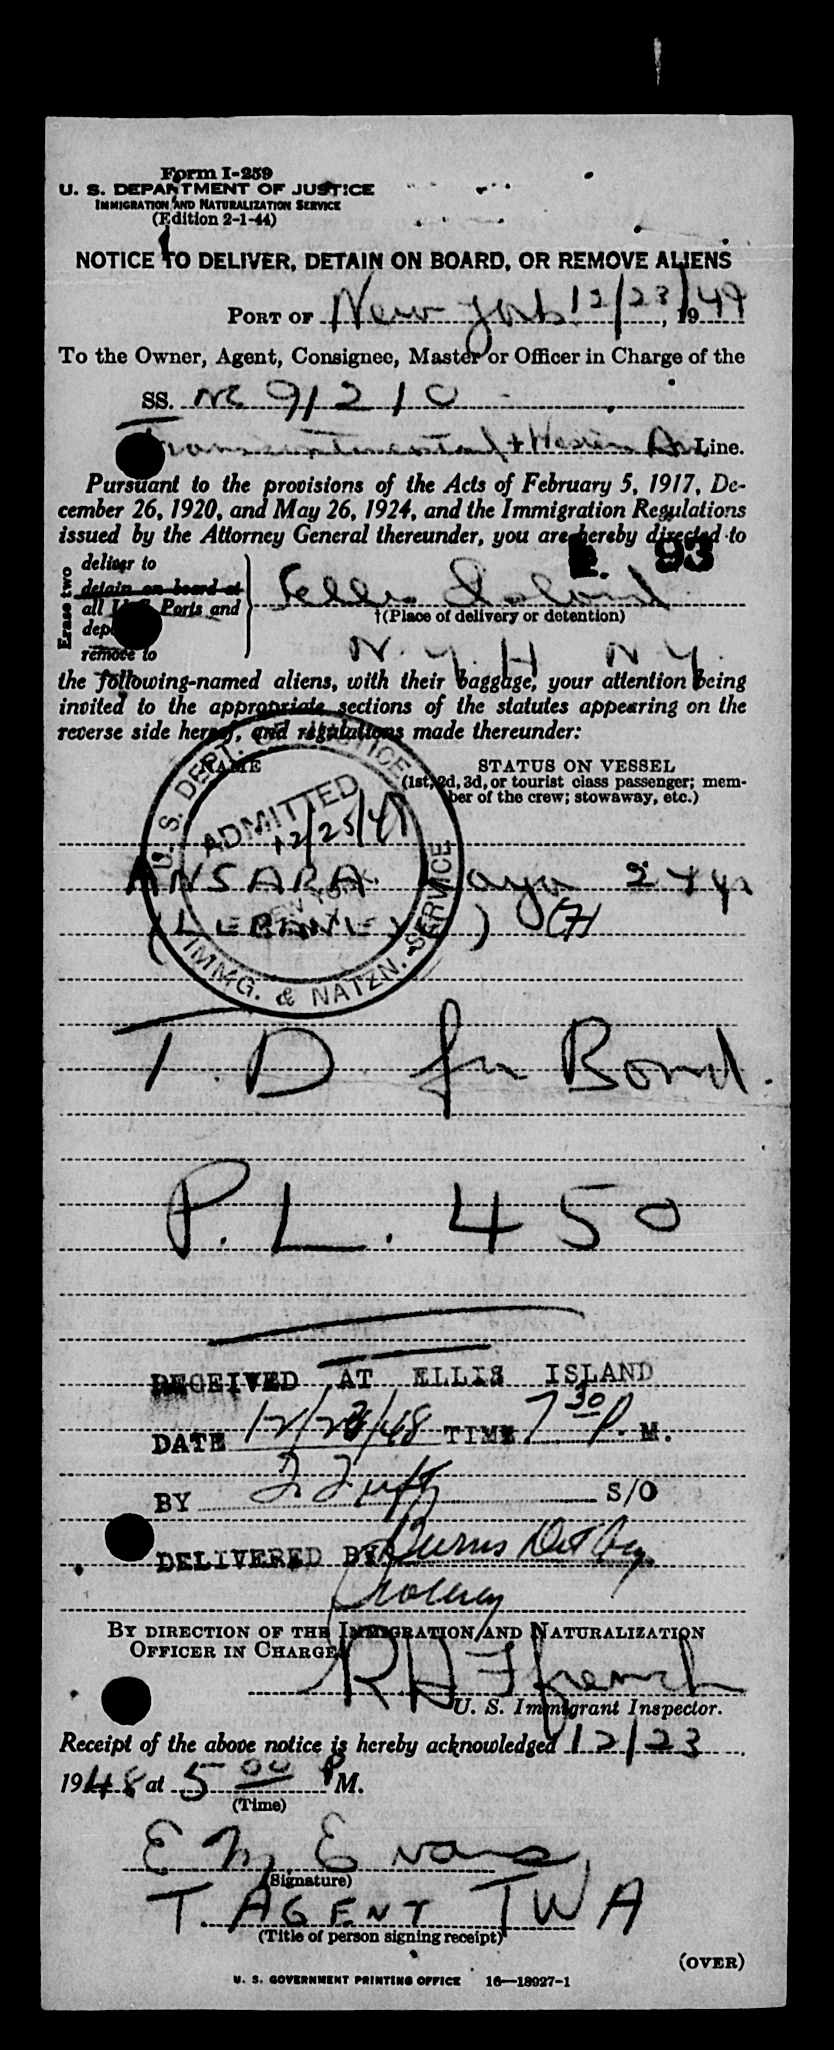 Form I-259
U. S. DEPARTMENT OF JUSTICE
IMMIGRATION AND NATURALIZATION SERVICE
(Edition 2-1-44)
NOTICE TO DELIVER, DETAIN ON BOARD, OR REMOVE ALIENS
PORT OF New York 12/23/, 1949
To the Owner, Agent, Consignee, Master or Officer in Charge of the
SS. NC 91210
Transcontinental + Western Air Line.
Pursuant to the provisions of the Acts of February 5, 1917, De-
cember 26, 1920, and May 26, 1924, and the Immigration Regulations
issued by the Attorney General thereunder, you are hereby directed to
93
Erase two
deliver to
detain on board at
all U. S. Ports and
remove to
Ellis Island
†(Place of delivery or detention)
N. Y. H N Y.
the following-named aliens, with their baggage, your attention being
invited to the appropriate sections of the statutes appearing on the
reverse side hereof, and regulations made thereunder:
NAME
STATUS ON VESSEL
(1st, 2d, 3d, or tourist class passenger; mem-
ber of the crew; stowaway, etc.)
U. S. DEPT. OF JUSTICE
ADMITTED
12/25/4
NEW YORK
IMMG. & NATZN. SERVICE
ANSARA 2 yrs
T. D for Bond.
P. L. 450
RECEIVED AT ELLIS ISLAND
DATE 12/23/48 TIME 7 30 P. M.
BY S/O
DELIVERED BY Burns Det Agy
BY DIRECTION OF THE IMMIGRATION AND NATURALIZATION
OFFICER IN CHARGE
R H Ffrench
U. S. Immigrant Inspector.
Receipt of the above notice is hereby acknowledged 12/23,
1948 at 5 00 P M.
(Time)
E M Evans
(Signature)
T. AGENT TWA
(Title of person signing receipt)
(OVER)
U. S. GOVERNMENT PRINTING OFFICE 16—18927-1